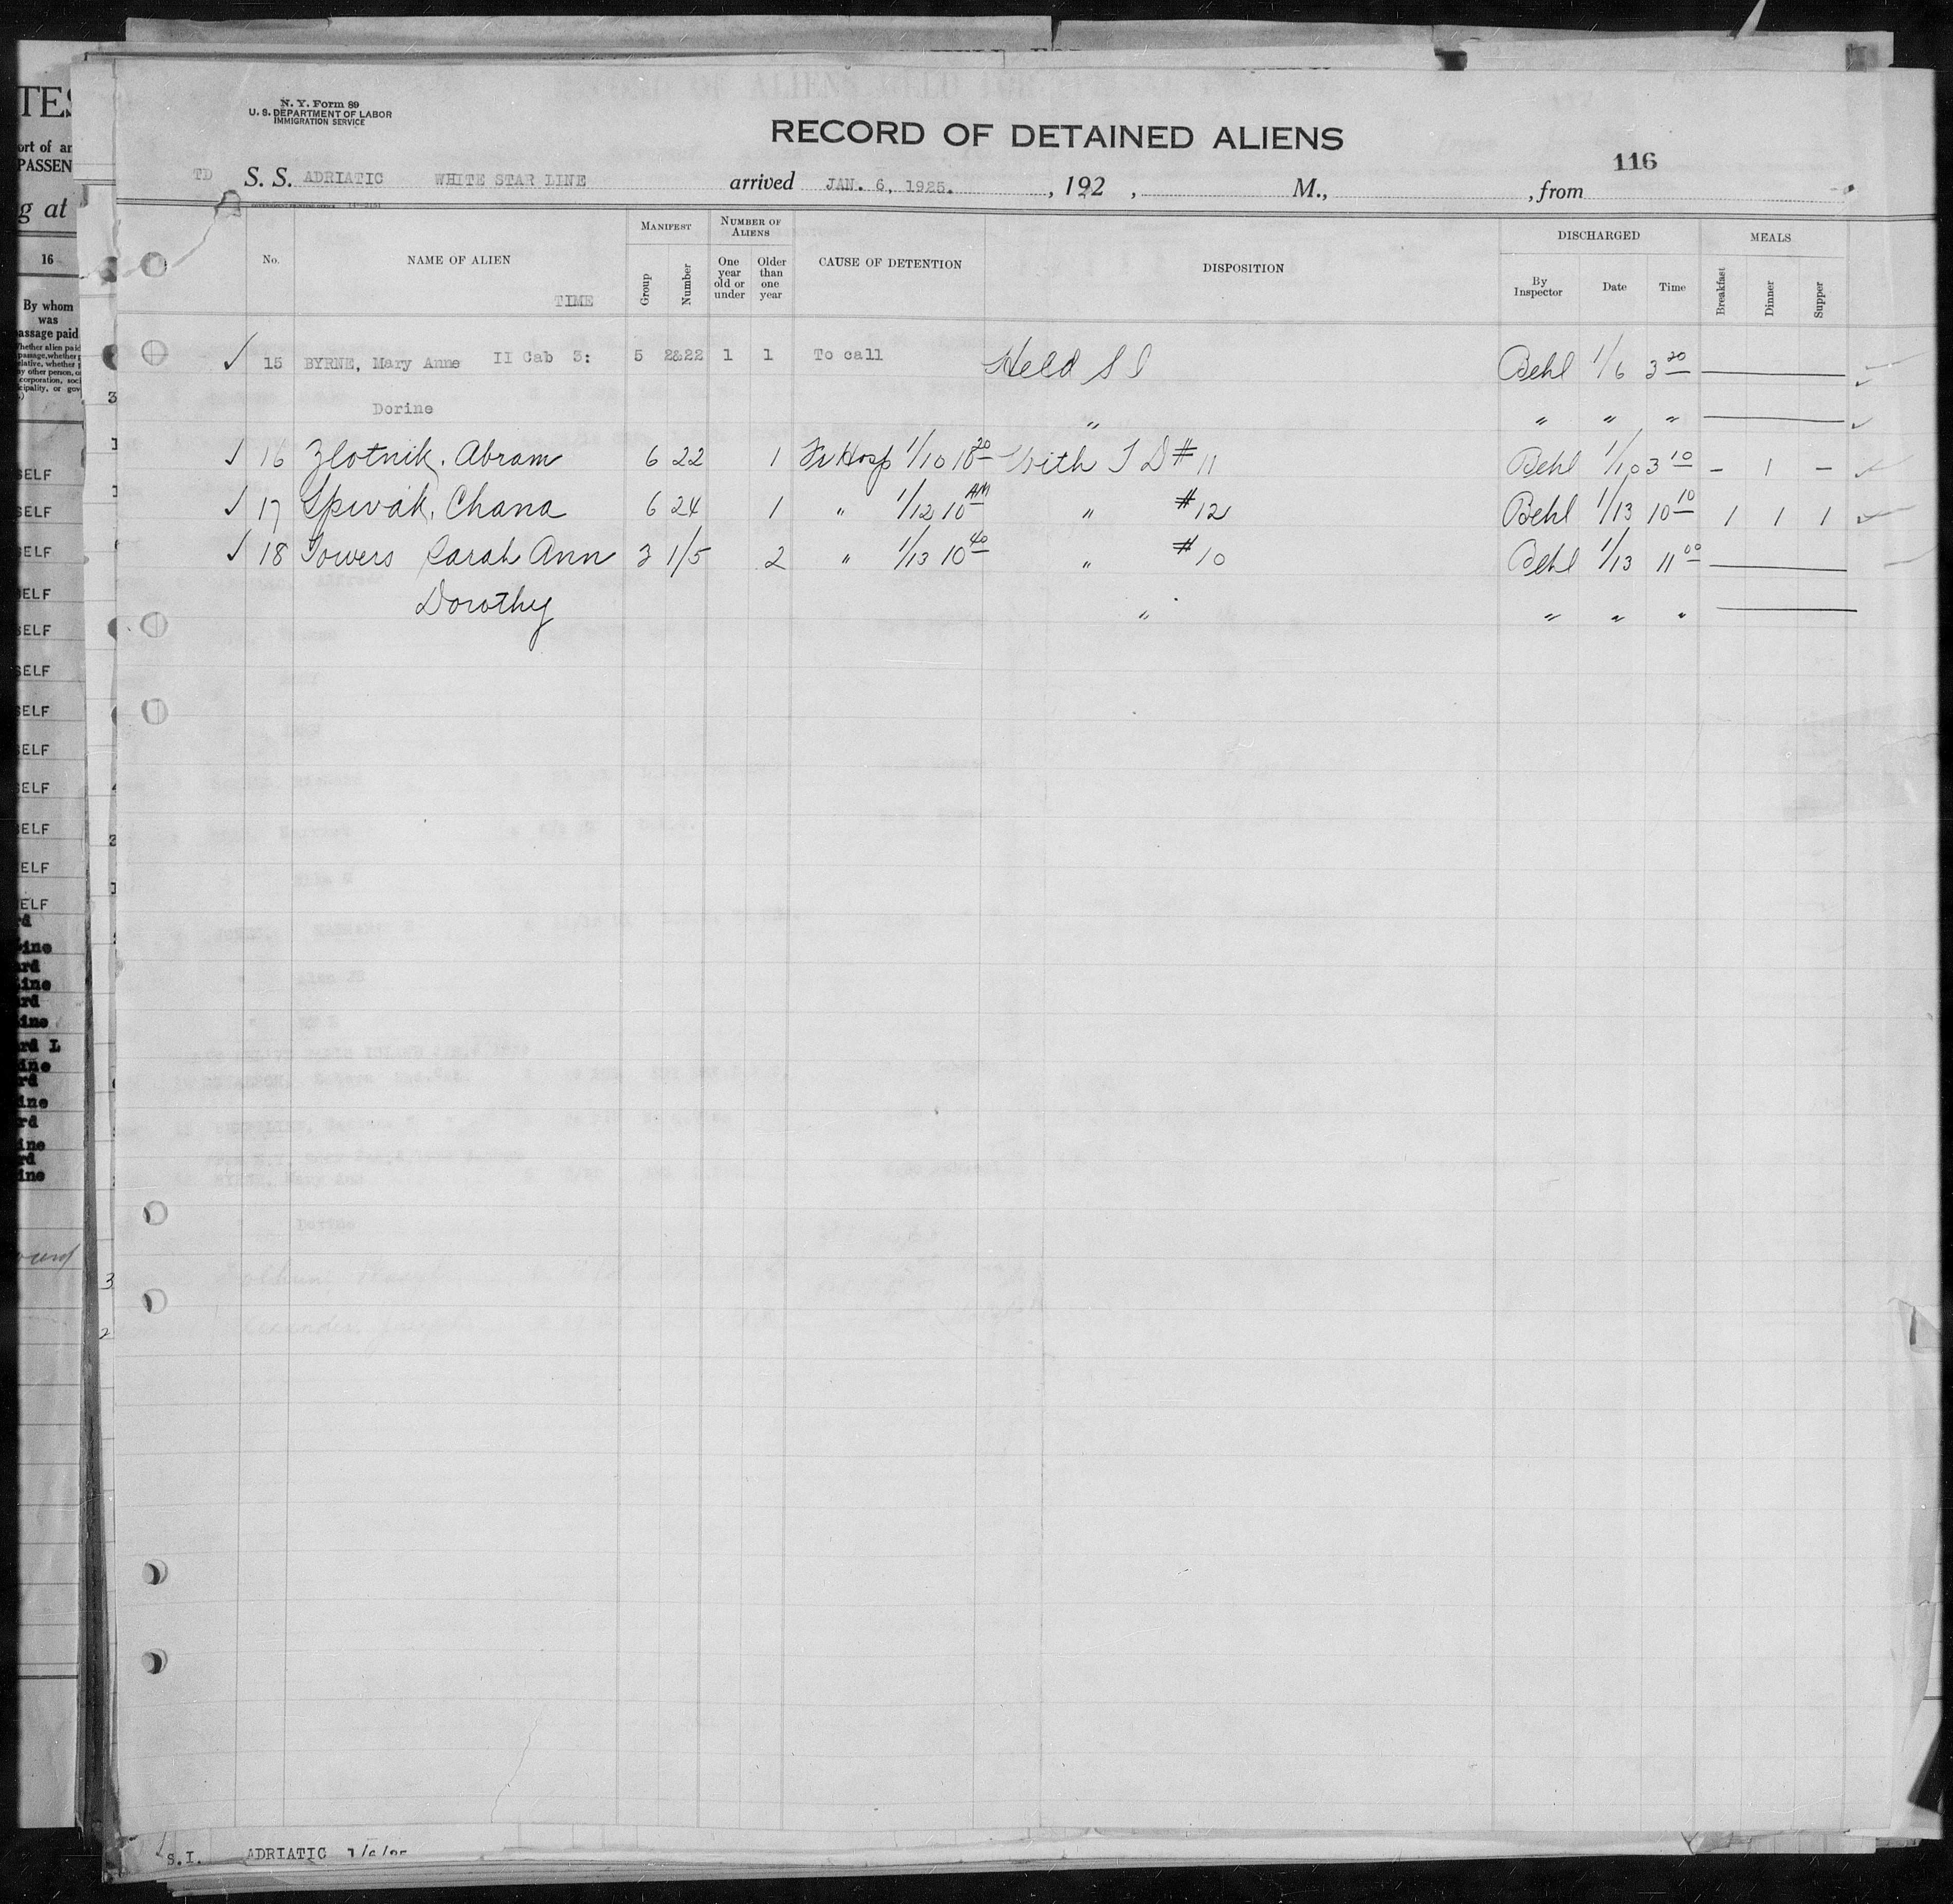 N. Y. Form 89
U. S. DEPARTMENT OF LABOR
IMMIGRATION SERVICE
RECORD OF DETAINED ALIENS
116
TD S. S. ADRIATIC WHITE STAR LINE arrived JAN. 6, 1925. , 192 , M., , from
No. NAME OF ALIEN TIME MANIFEST Group Number NUMBER OF ALIENS One year old or under Older than one year CAUSE OF DETENTION DISPOSITION DISCHARGED By Inspector Date Time MEALS Breakfast Dinner Supper
✓ 15 BYRNE, Mary Anne II Cab 3: 5 2&22 1 1 To call Held S I Behl 1/6 3 20
Dorine " " " "
✓ 16 Zlotnik, Abram 6 22 1 Fr Hosp 1/10 10 20 With T D # 11 Behl 1/10 3 10 - 1 -
✓ 17 Spivak, Chana 6 24 1 " 1/12 10 AM " # 12 Behl 1/13 10 10 1 1 1
✓ 18 Towers Sarah Ann 3 1/5 2 " 1/13 10 40 " # 10 Behl 1/13 11 00
Dorothy " " " "
S.I. ADRIATIC 1/6/25
TES
ort of
PASSEN
g at
16
By whom
was
passage paid
SELF
SELF
SELF
SELF
SELF
SELF
SELF
SELF
SELF
SELF
SELF
SELF